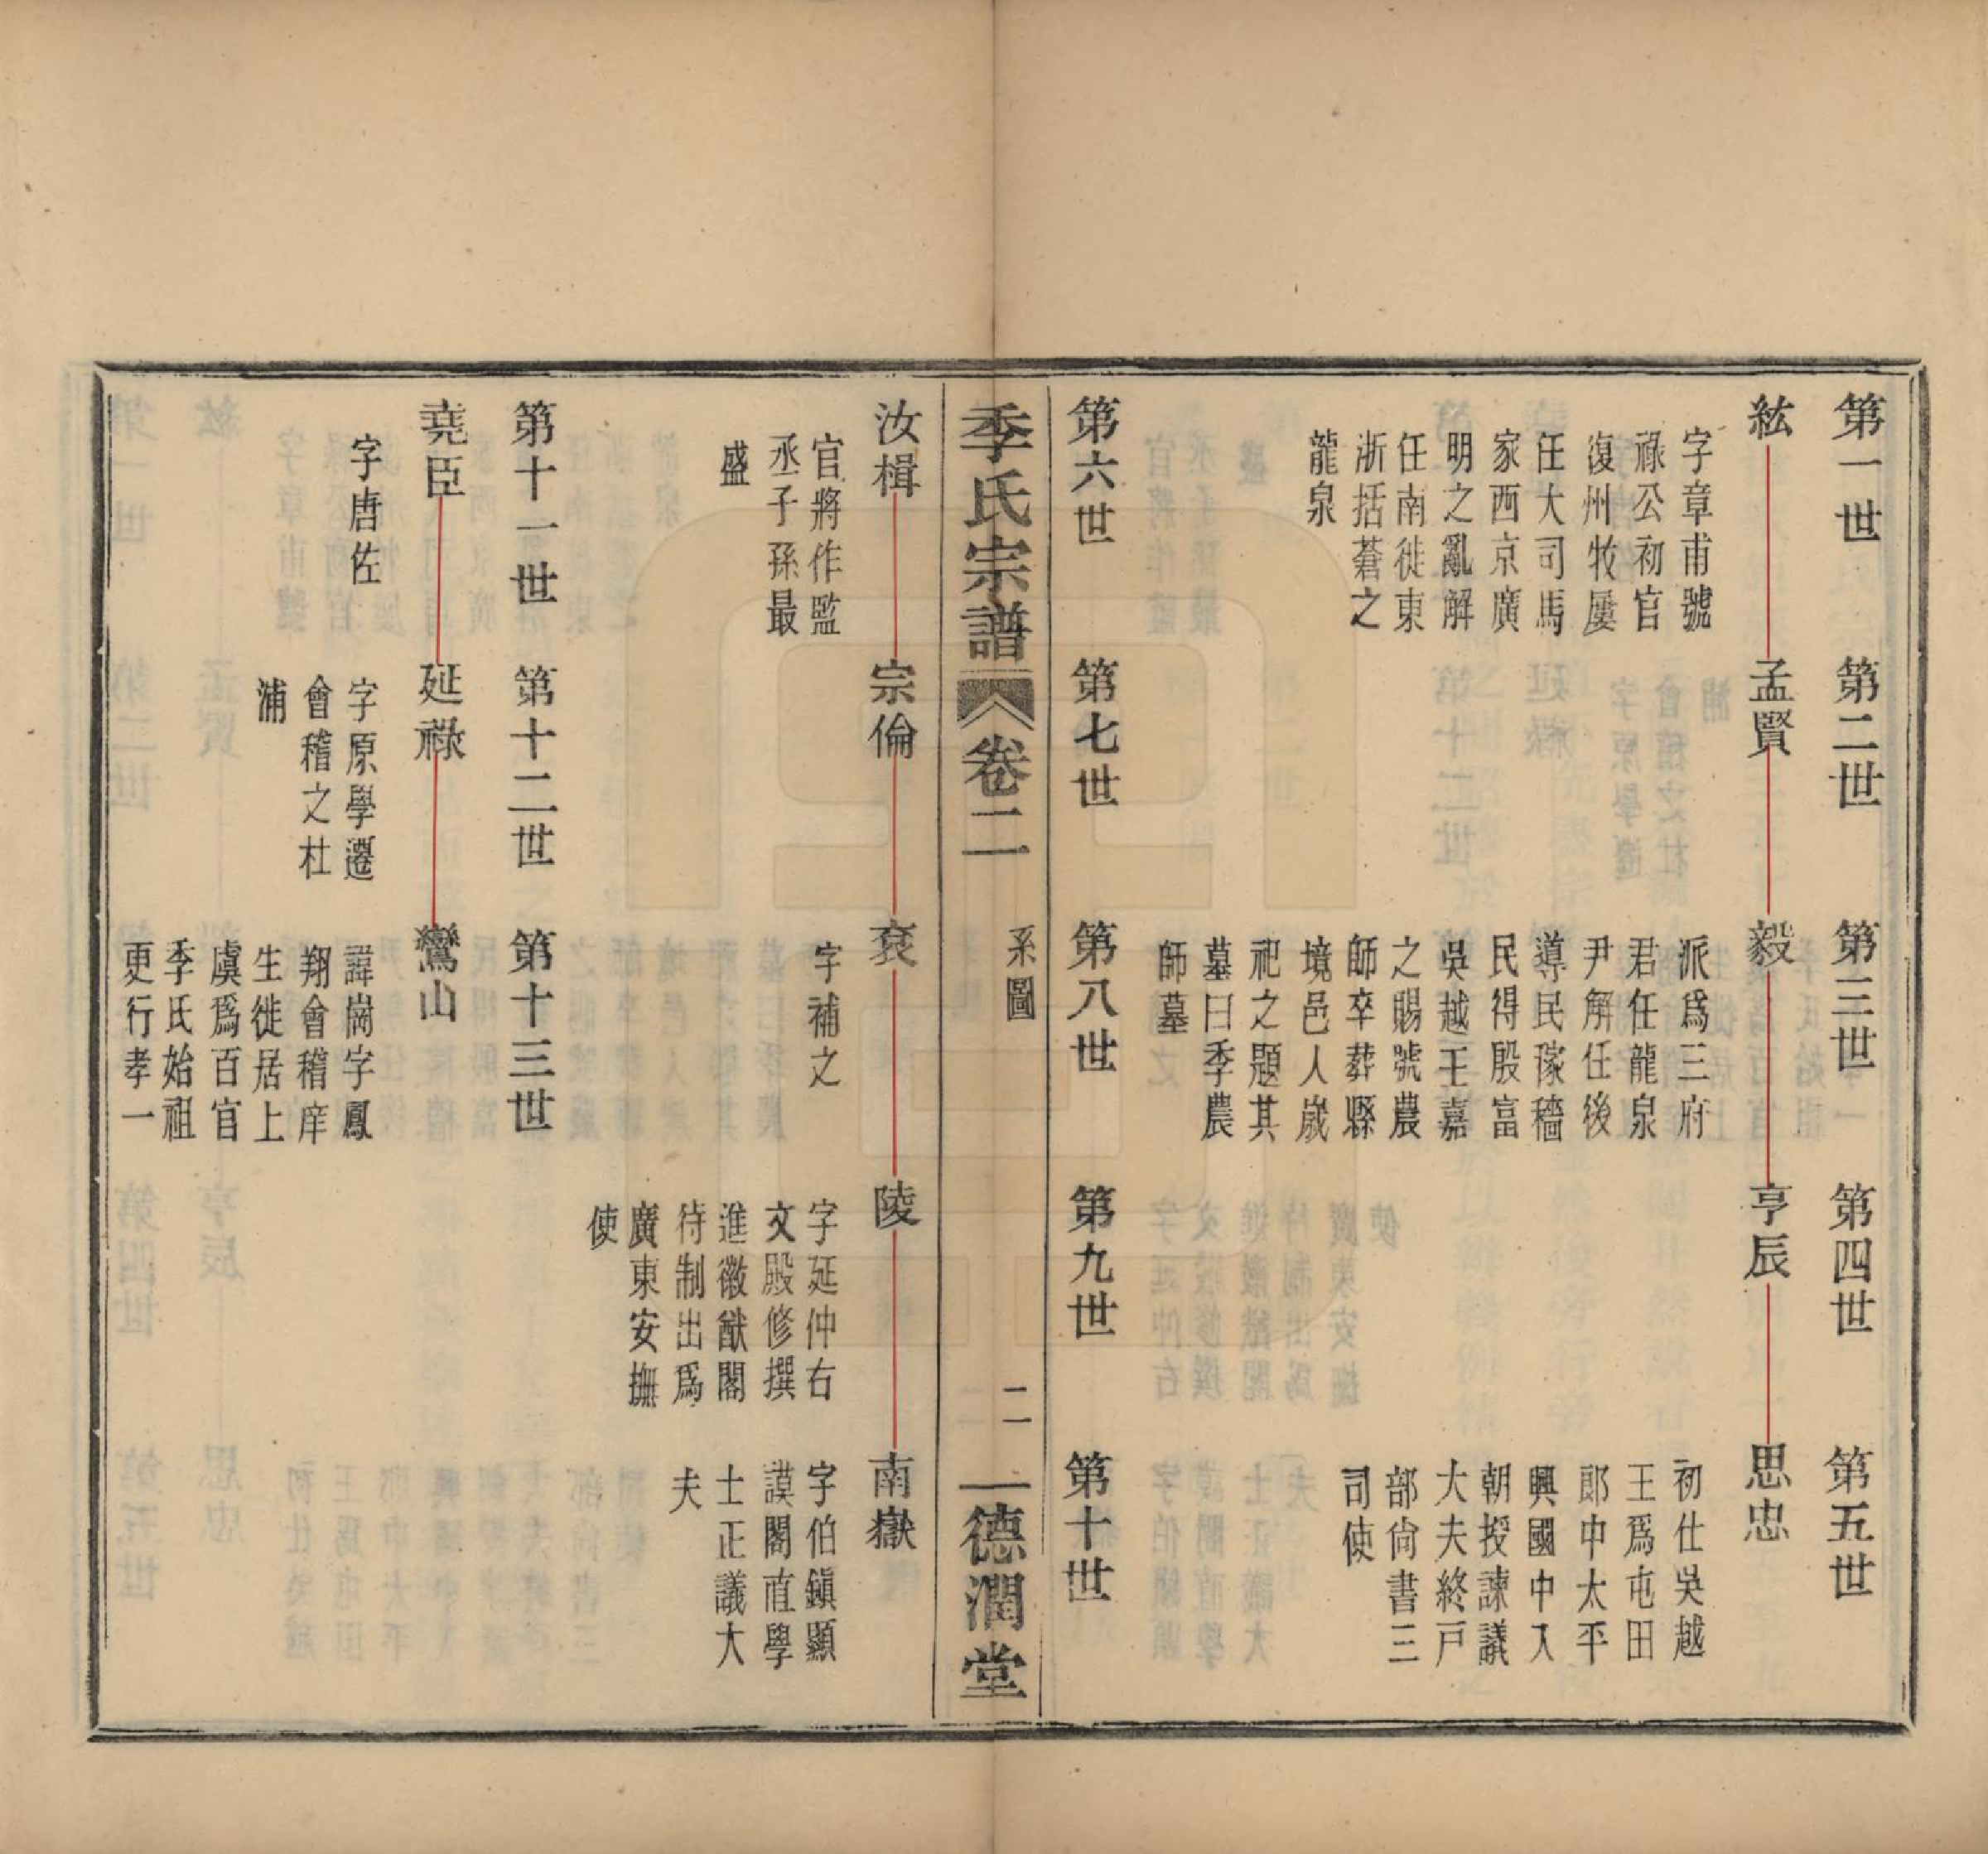 第一世
第二世
第三世
第四世
第五世
紘
孟賢
毅
亨辰
思忠
字章甫號
祿公初官
復州牧屢
任大司馬
家西京廣
明之亂解
任南徙東
浙括蒼之
龍泉
派爲三府
君任龍泉
尹解任後
導民稼穡
民得殷富
吳越王嘉
之賜號農
師卒葬縣
境邑人歲
祀之題其
墓曰季農
師墓
初仕吳越
王爲屯田
郞中太平
興國中入
朝授諫議
大夫終戸
部尙書三
司使
第六世
第七世
第八世
第九世
第十世
季氏宗譜
卷二
系圖
二
德潤堂
汝楫
宗倫
袞
陵
南嶽
官將作監
丞子孫最
盛
字補之
字延仲右
文殿修撰
進徽猷閣
待制出爲
廣東安撫
使
字伯鎭顯
謨閣直學
士正議大
夫
第十一世
第十二世
第十三世
堯臣
延祿
鸞山
字唐佐
字原學遷
會稽之杜
浦
諱崗字鳳
翔會稽庠
生徙居上
虞爲百官
季氏始祖
更行孝一